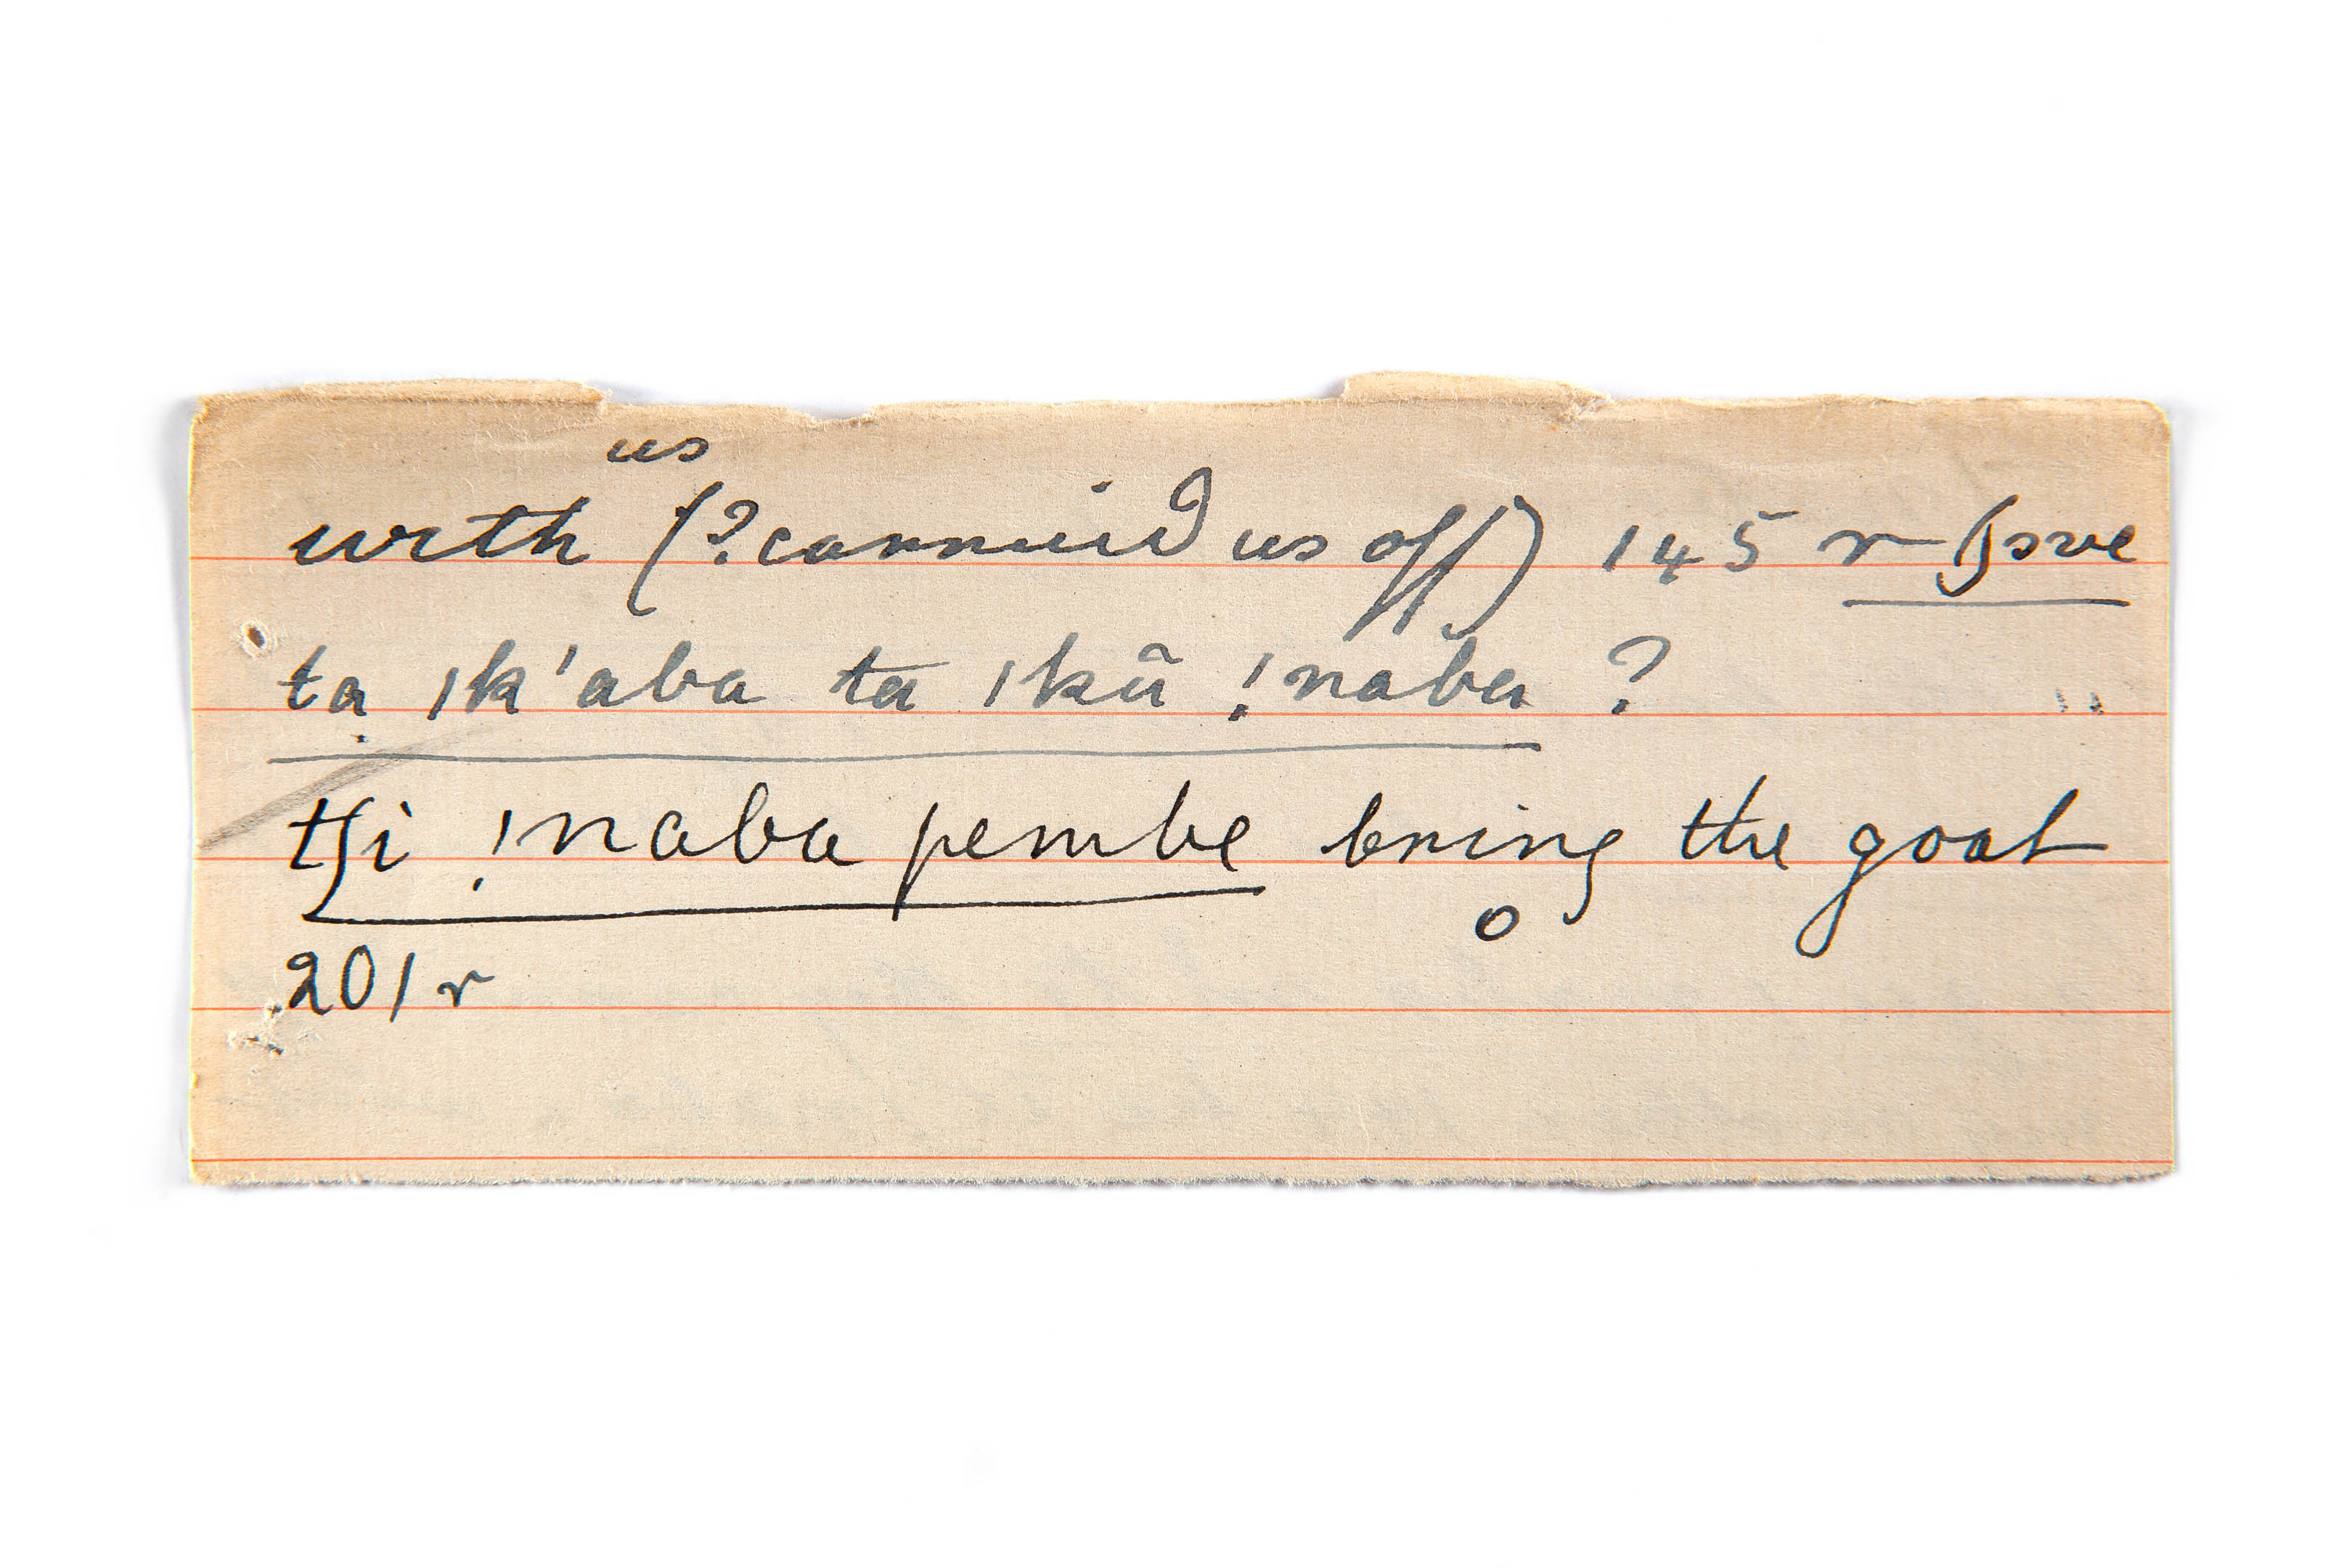 us
with (? carried us off) 145 r ʃɔve
tạ ǀk'aba ta ǀkū ǃnăba ? "
tʃi ǃnaba pembe bring the goat
o
201 r